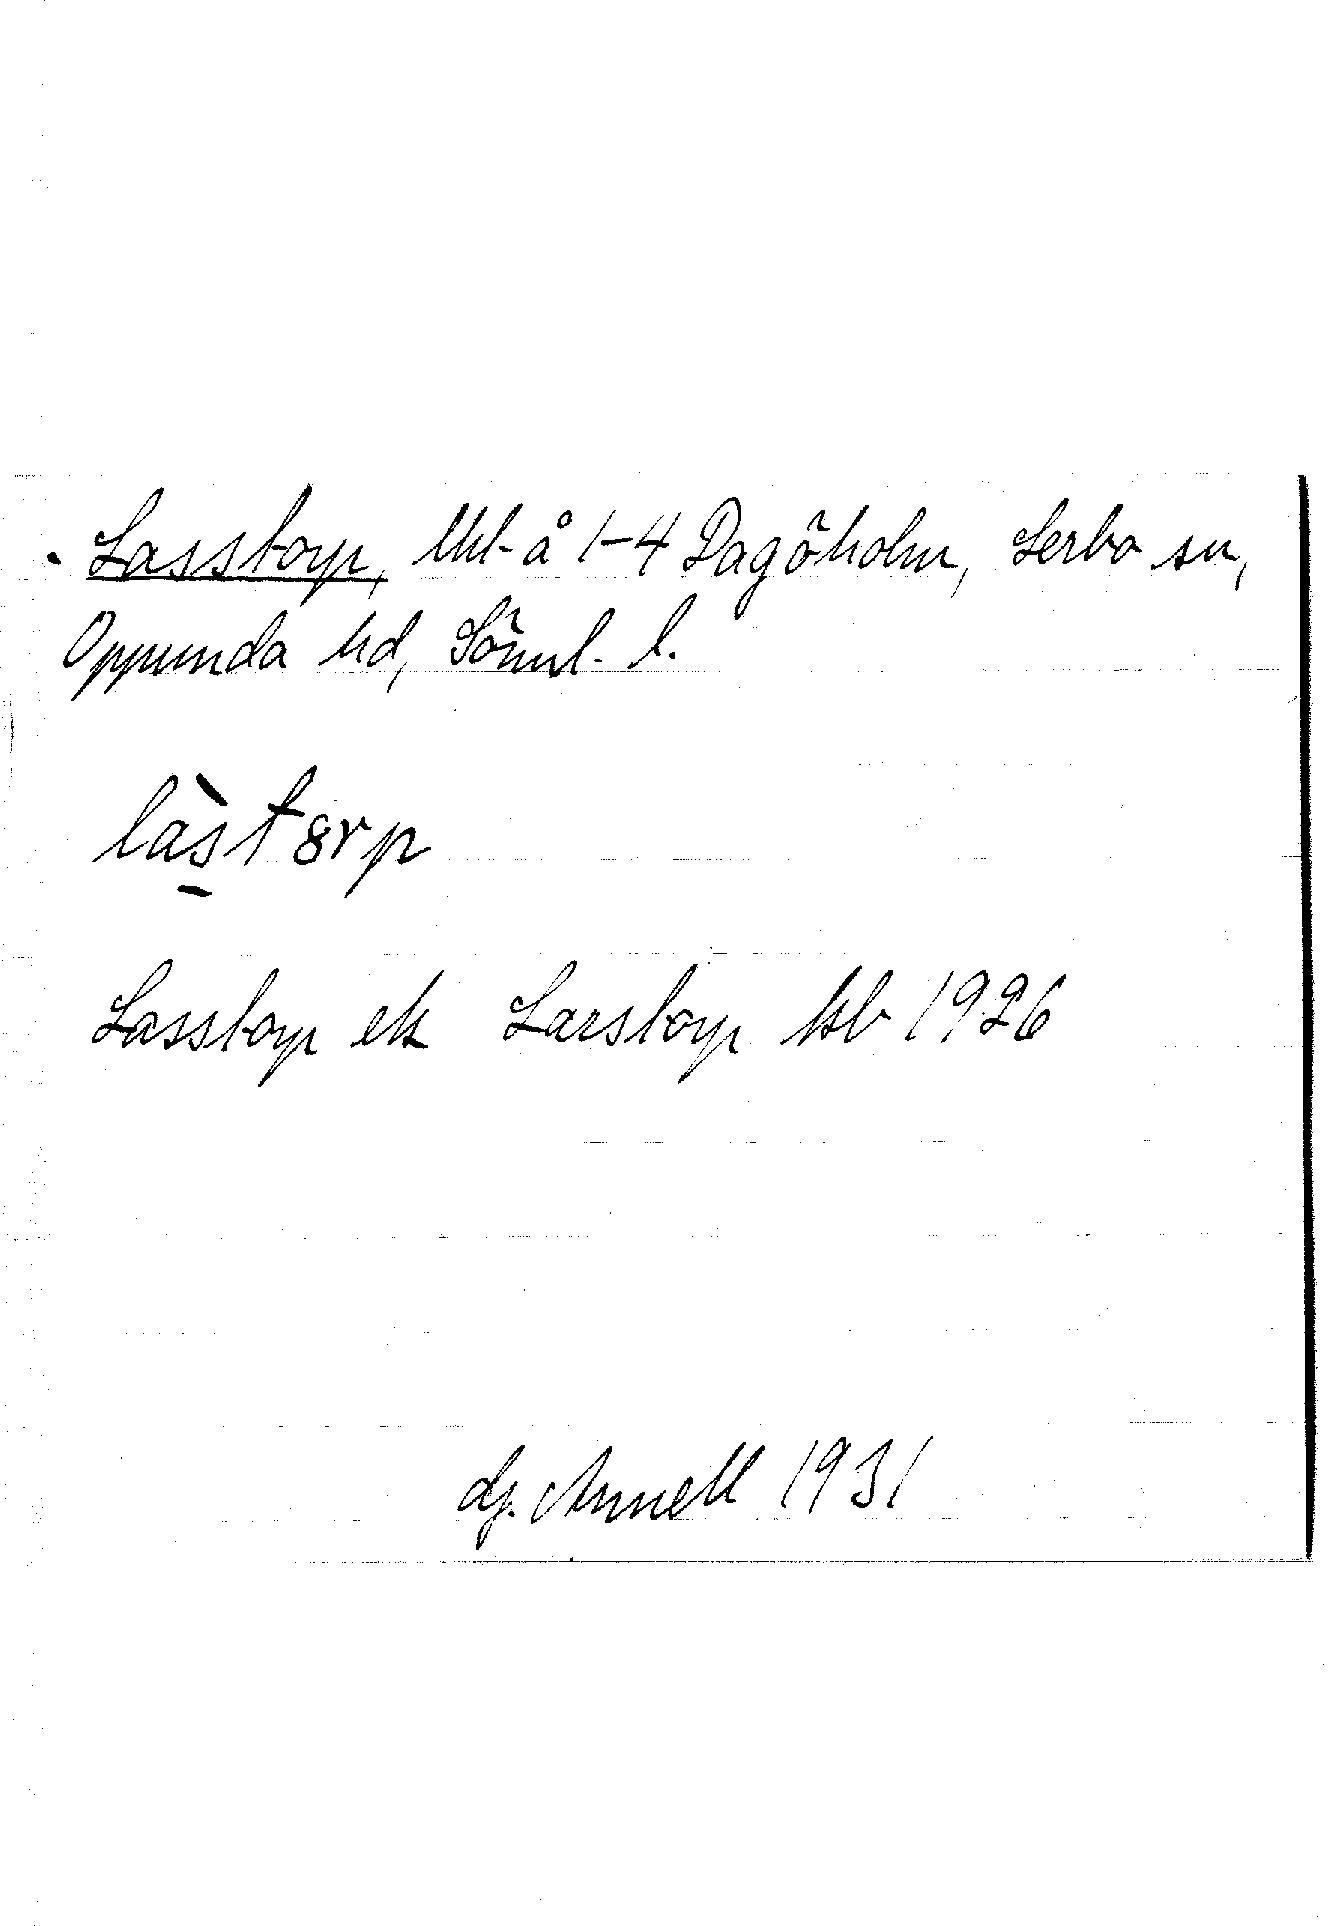 Lasstorp, lht å 1-4 Dagöholm, Lerbo sn,
Oppunda hd, Söml. l.
làsts̱rp
Lasstorp ek Larstorp kb 1926
Hj. Annell 1931